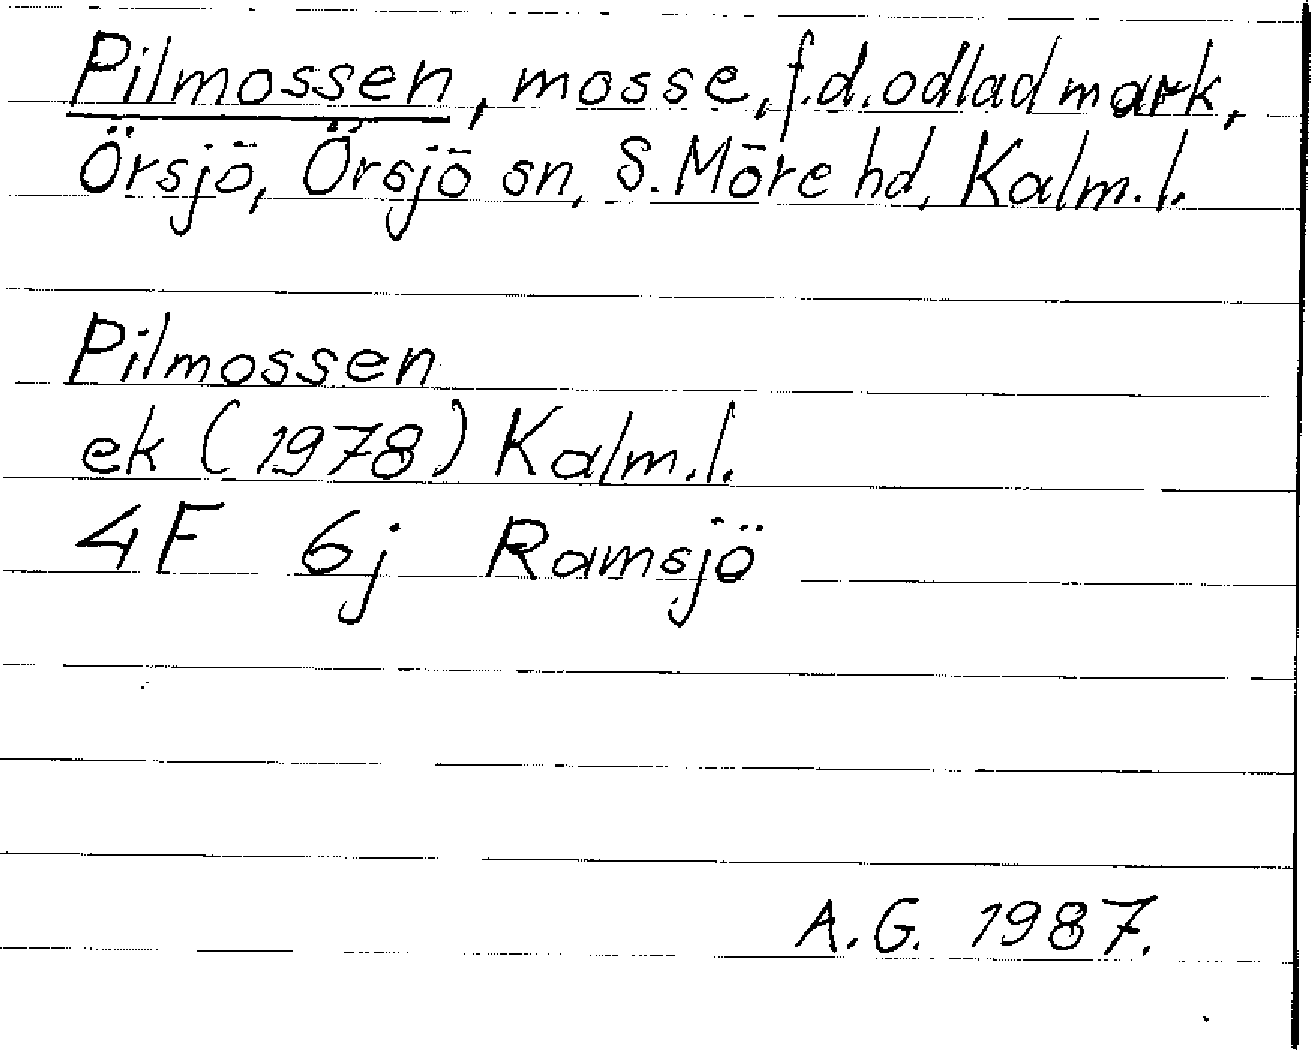 Pilmossen, mosse, f.d. odlad mark,
Örsjö, Örsjö sn, S. Möre hd, Kalm. l.
Pilmossen
ek (1978) Kalm. l.
4F 6j Ramsjö
A.G. 1987.